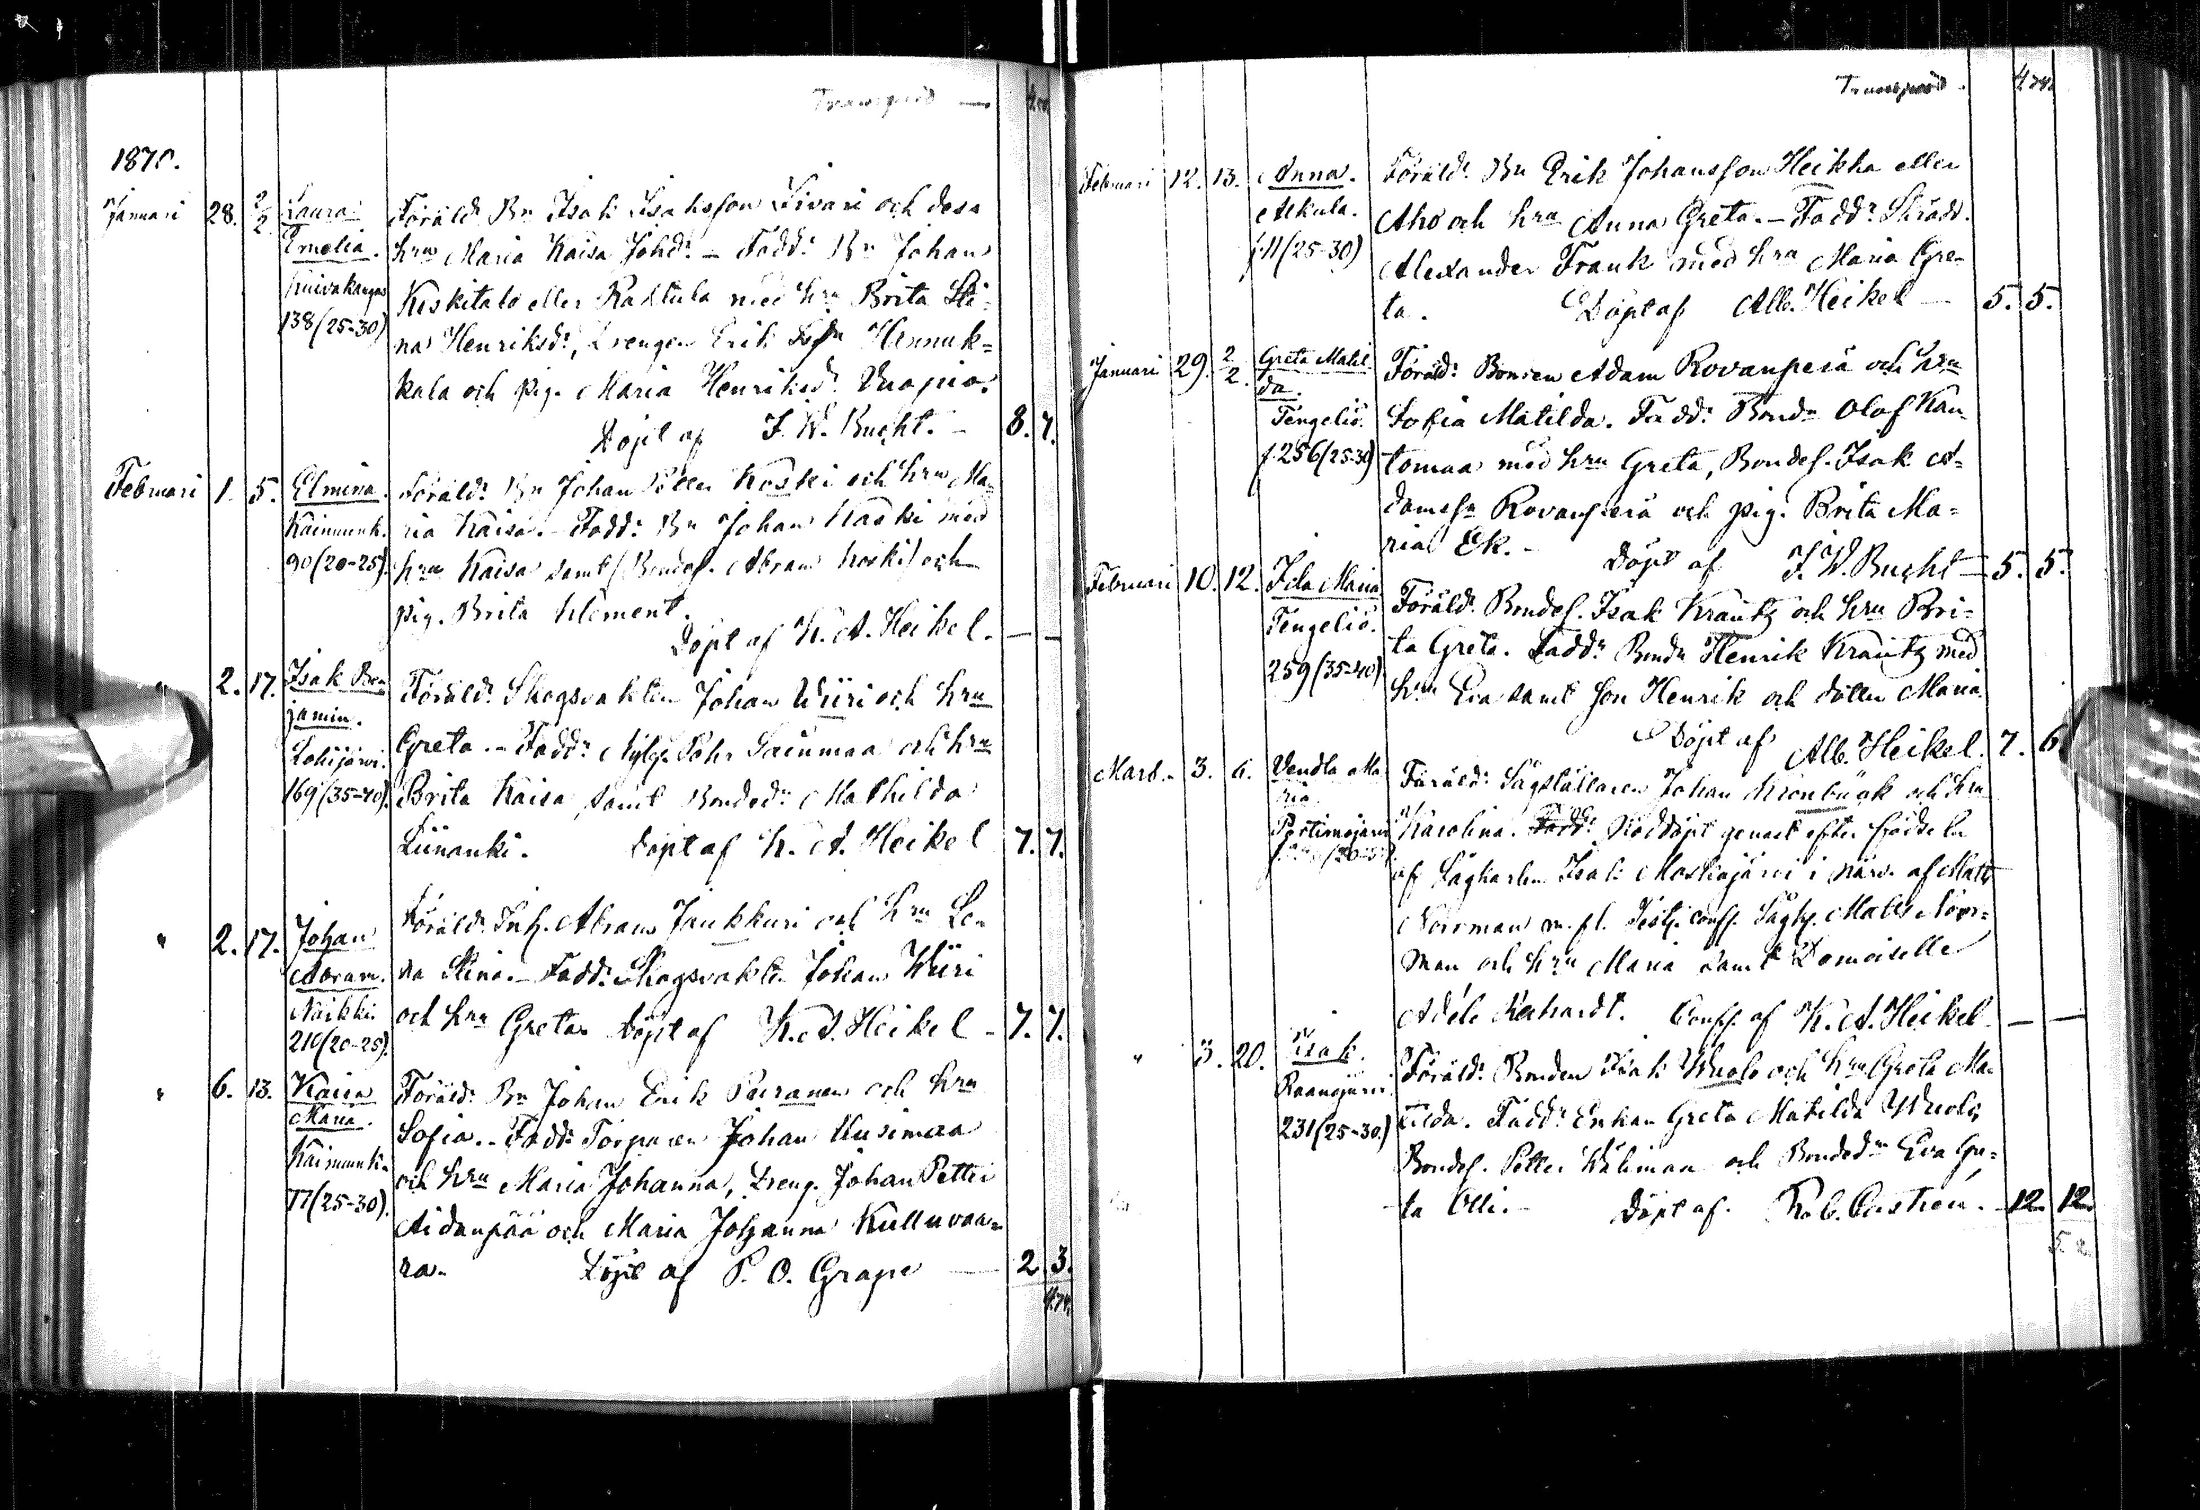 Transport —
1870.
Januari 28. 2/2 Laura Föräld: Bn Isak Isaksson Livari och dess
Emelia. hru Maria Kaisa Johdr. – Fadd: Bn Johan
Kuivakangas Keskitalo eller Rautula med hru Brita Sti-
138 (25-30) na Henriksdr, Drengen Erik Hennuk-
kala och pig. Maria Henriksdr Vuopio.
Döpt af F. W. Bucht. – 8. 7.
Februari 1. 5. Elmina. Föräld: Bn Johan Petter Koski och hru Ma-
Kaimunk. ria Kaisa. – Fadd: Bn Johan Kaski med
90 (20-25). hru Kaisa samt (Bondes. Abram Koski) och
pig. Brita Klement.
Döpt af K. A. Heikel. — —
" 2. 17. Isak Ben- Föräld: Skogsvakten Johan Wiiri och hru
jamin. Greta. – Fadd: Nybyg. Pehr Sainmaa och hru
Lohijärvi. Brita Kaisa samt Bondedr Mathilda
169 (35-40). Liinanki. Döpt af K. A. Heikel 7. 7.
" 2. 17. Johan Föräld: Inh. Abram Jaukkuri och hru Le-
Abram. na Stina. – Fadd: Skogsvakten Johan Wiiri
Naikki och hru Greta. Döpt af K. A. Heikel – 7. 7.
210 (20-25).
" 6. 13. Kaisa Föräld: Bn Johan Erik Pairanen och hru
Maria. Sofia. – Fadd: Torparen Johan Kusimaa
Kaimunk. och hru Maria Johanna, Dreng. Johan Petter
77 (25-30). Aidanpää och Maria Johanna Kulluvaa-
ra. Döpt af P. O. Grape — 2. 3.
474.
Transport – 474.
Februari 12. 13. Anna. Föräld: Bn Erik Johansson Heikka eller
Alkula. Aho och hru Anna Greta. – Fadd: Skrädd.
f. 11 (25-30) Alexander Frank med hru Maria Gre-
ta. Döpt af Alb. Heikel — 5. 5.
Januari 29. 2/2. Greta Matil- Föräld: Bonden Adam Rovanperä och hru
da. Sofia Matilda. Fadd: Bondn Olof Kan-
Tengeliö. tomaa med hru Greta, Bondes. Isak A-
f. 256 (25-30) damsn Rovanperä och pig. Brita Ma-
ria Ek. – Döpt af F. W. Bucht — 5. 5.
Februari 10. 12. Ida Maria Föräld: Bondes. Isak Krantz och hru Bri-
Tengeliö. ta Greta. Fadd: Bondn Henrik Krantz med
259 (35-40) hru Eva samt son Henrik och dotter Maria.
Döpt af Alb. Heikel. 7. 6.
Mars. 3. 6. Vendla Ma- Föräld: Sågställaren Johan Kronbäck och hru
ria. Karolina. Fadd: Nöddöpt genast efter födseln
Portimojärvi af Sågkarlen Isak Mostiojärvi i närv. af Matts
Norrman m. fl. Test. conf. Sågk. Matts Norr-
man och hru Maria samt Demoiselle
Adéle Rechardt. Conf. af K. A. Heikel. — —
" 3. 20. Isak. Föräld: Bonden Isak Wuolo och hru Greta Ma-
Raanujärvi tilda. Fadd: Enkan Greta Matilda Wuolo,
231 (25-30) Bondes. Petter Wälimaa och Bondedn Eva Gre-
ta Olli. – Döpt af. Rob. Castrén. – 12. 12.